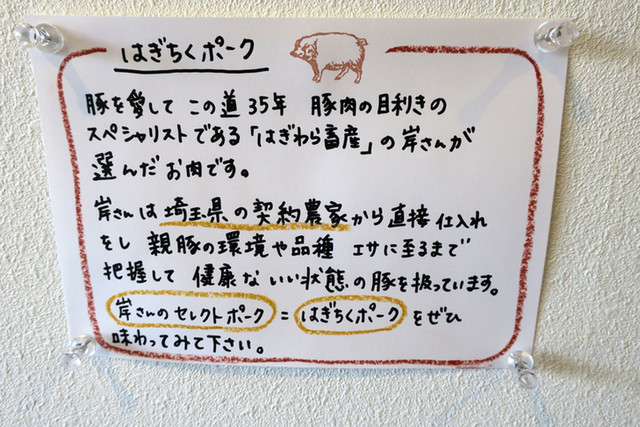 はぎちくポーク
豚を愛して この道35年 豚肉の目利きの
スペシャリストである「はぎわら畜産」の岸さんが
選んだお肉です。
岸さんは埼玉県の契約農家から直接仕入れ
をし 親豚の環境や品種 エサに至るまで
把握して 健康な いい状態の豚を扱っています。
岸さんのセレクトポーク = はぎちくポーク をぜひ
味わってみて下さい。